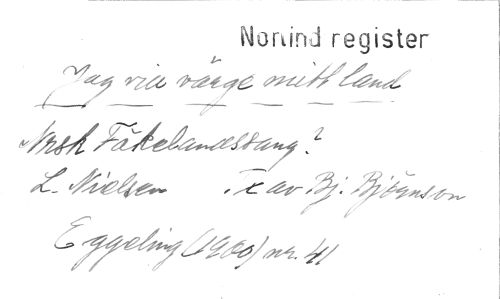 Norlind register
Jag vill värge mith land
Norsk Fäkelandssang?
L. Nielsen Tx av Bj. Björnson
Eggeling (1900) nr. 41